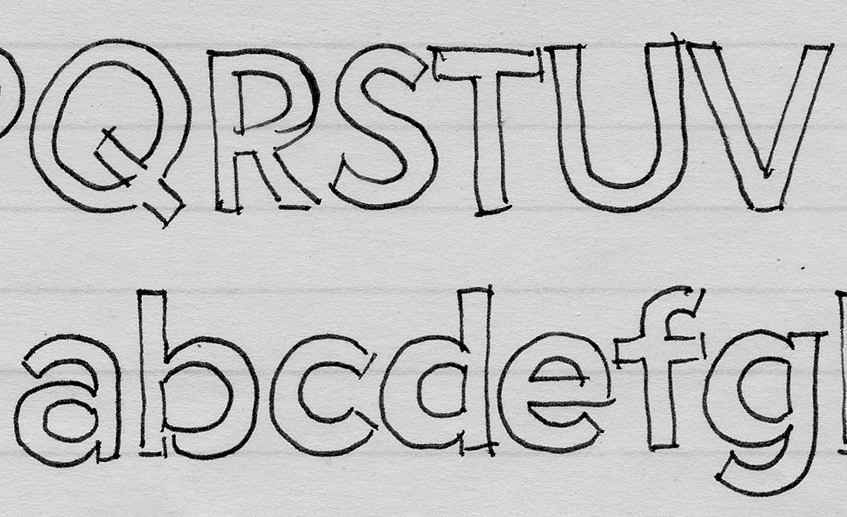 QRSTUV
abcdefg